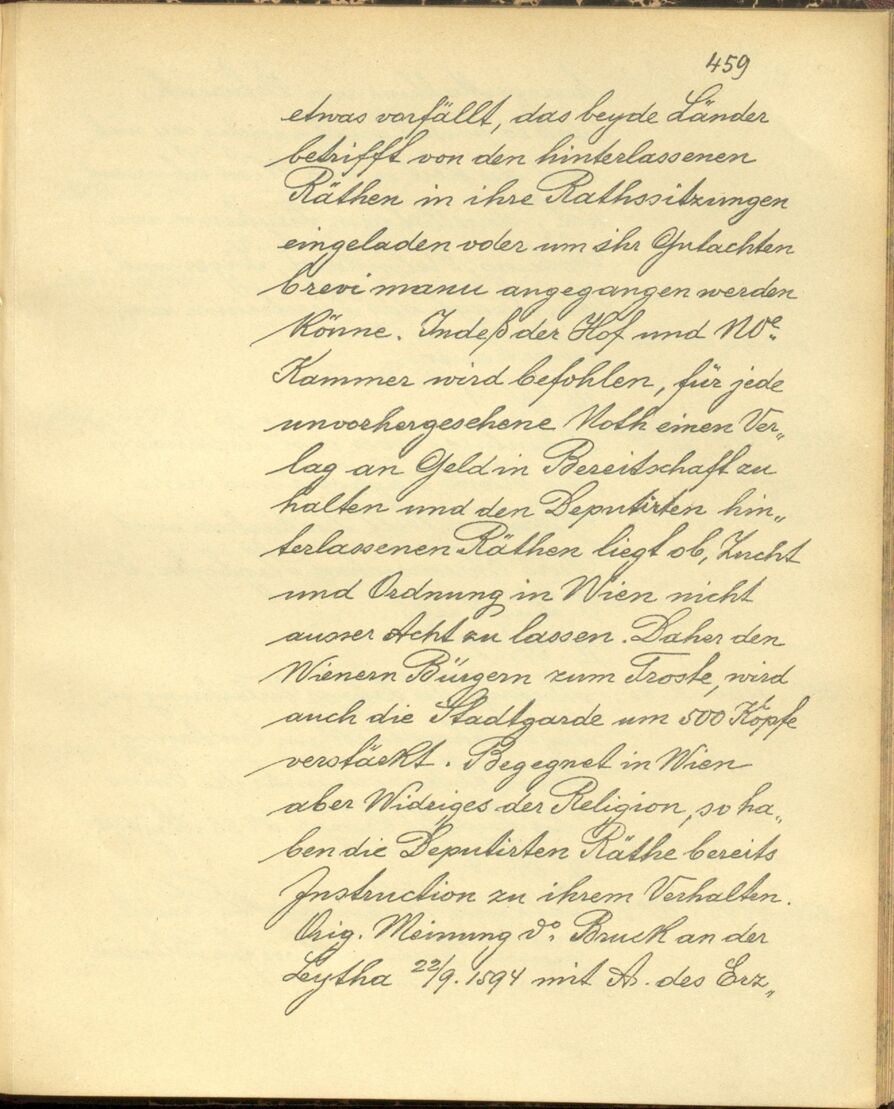 459
etwas vorfällt, das beyde Länder
betrifft von den hinterlassenen
Räthen in ihre Rathssitzungen
eingeladen oder um ihr Gutachten
brevi manu angegangen werden
könne. Indeß der Hof und NÖe:
Kammer wird befohlen, für jede
unvorhergesehene Noth einen Ver„
lag an Geld in Bereitschaft zu
halten und den Deputirten hin„
terlassenen Räthen liegt ob, Zucht
und Ordnung in Wien nicht
ausser Acht zu lassen. Daher den
Wienern Bürgern zum Troste, wird
auch die Stadtgarde um 500 Köpfe
verstärkt. Begegnet in Wien
aber Widriges der Religion, so ha„
ben die Deputirten Räthe bereits
Instruction zu ihrem Verhalten.
Orig. Meinung do. Bruck an der
Leytha 22/9. 1594 mit A. des Erz„